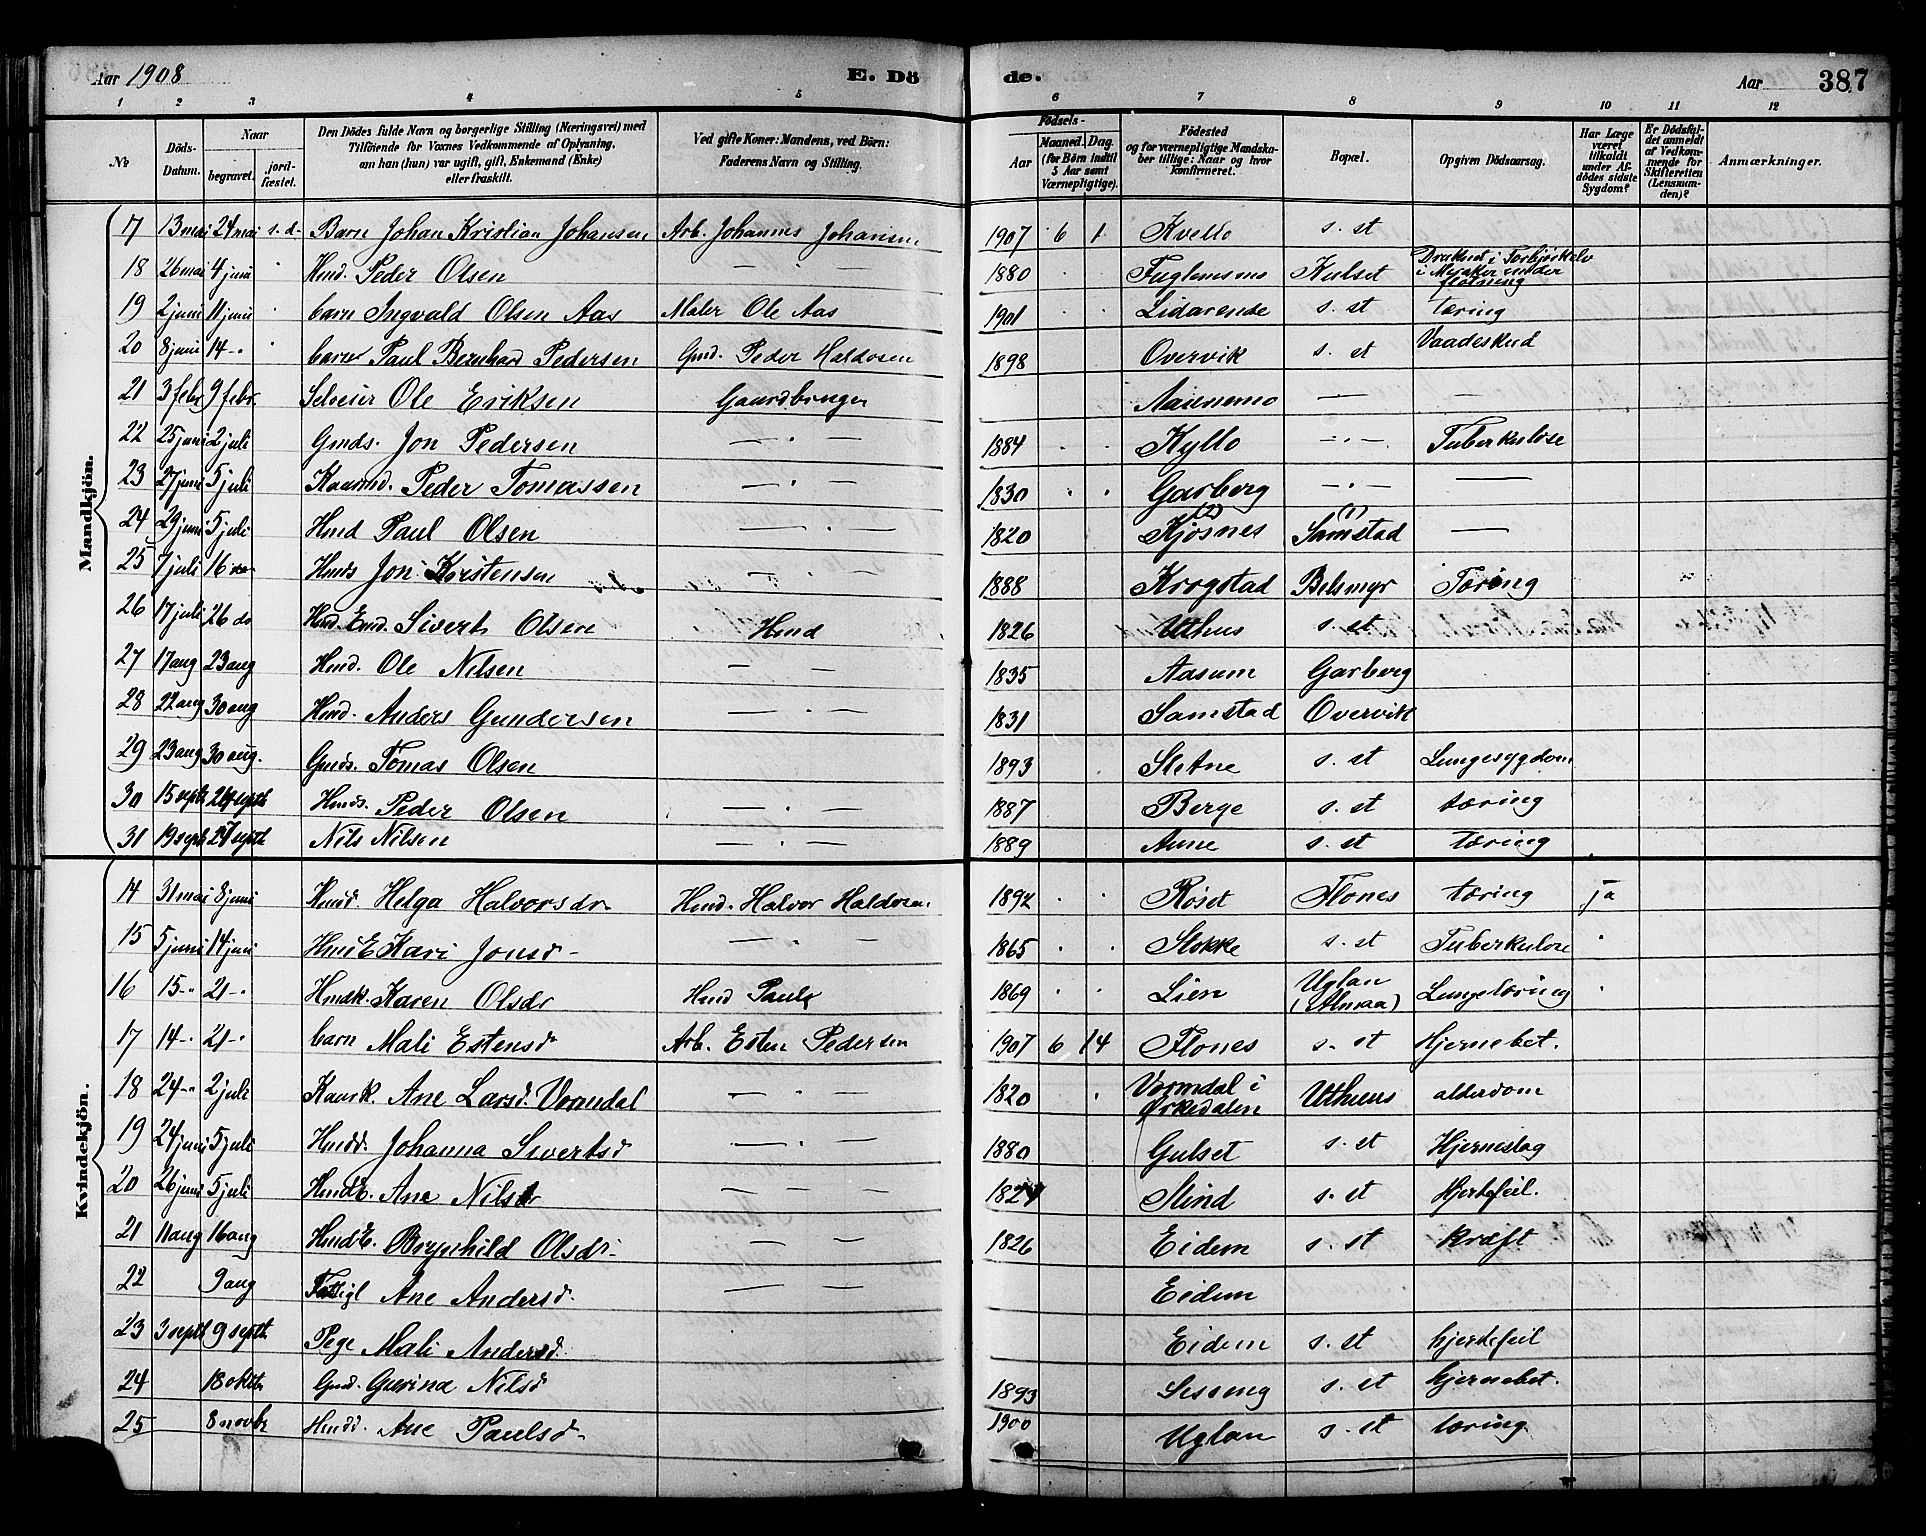 Aar 1908 E. Dö de. Aar 387
1 2 3 4 5 6 7 8 9 10 11 12
No
Döds-Datum.
Naar begravet. jordfæstet.
Den Dödes fulde Navn og borgerlige Stilling (Næringsvei) med Tilföiende for Voxnes Vedkommende af Oplysning, om han (hun) var ugift, gift, Enkemand (Enke) eller fraskilt.
Ved gifte Koner: Mandens, ved Börn: Faderens Navn og Stilling.
Födsels- Aar Maaned. Dag. (for Börn indtil 5 Aar samt Værnepligtige).
Födested og for værnepligtige Mandskaber tillige: Naar og hvor konfirmeret.
Bopæl.
Opgiven Dödsaarsag.
Har Læge været tilkaldt under Afdödes sidste Sygdom?
Er Dödsfaldet anmeldt af Vedkommende for Skifteretten (Lensmanden)?
Anmærkninger.
Mandkjön.
17 13 mai 24 mai s. d. Barn Johan Kristian Johansen Arb. Johannes Johansen 1907 6 1 Kvello s. st
18 26 mai 4 juni Hmd. Peder Olsen — — 1880 Fuglemsmo Kulset Druknet i Torbjørkelv i Meraker under fløtning
19 2 juni 11 juni barn Ingvald Olsen Aas Maler Ole Aas 1901 Lidarende s. st tæring
20 8 juni 14 -"- barn Paul Bernhard Pedersen Gmd. Peder Haldosen 1898 Overvik s. st Vaadeskud
21 3 febr 9 febr. Selveier Ole Eriksen Gaardbruger — — —
22 25 juni 2 juli Gmds. Jon Pedersen — " — 1884 Kyllo — " — Tuberkulose
23 27 juni 5 juli Kaarmd. Peder Tomassen — " — 1830 Garberg — " — —
24 29 juni 5 juli Hmd Paul Olsen — " — 1820 Kjøsnes (2) Samstad (1) —
25 7 juli 16 do Hmds Jon Korstensen — " — 1888 Krogstad Belsmyr Tæring
26 17 juli 26 do Hmd. End. Sivert Olsen Hmd 1826 Uthus s. st
27 17 aug 23 aug Hmd. Ole Nilsen — — 1835 Aasum Garberg
28 22 aug 30 aug Hmd. Anders Gundersen — " — 1831 Samstad Overvik
29 23 aug 30 aug. Gmds. Tomas Olsen 1893 Sletne s. st Lungesygdom
30 15 septb 24 septb Hmds. Peder Olsen — " — 1887 Berge s. st tæring
31 19 septb 27 septb Nils Nilsen — " — 1889 Aune s. st tæring
Kvindekjön.
14 31 mai 8 juni Helga Halvorsdr. Hmd. Halvor Haldosen 1892 Røset Flones tæring ja
15 5 juni 14 juni Hmd E Kari Jonsd — " — 1865 Stokke s. st Tuberkulose "
16 15 -"- 21 -"- Hmdk. Karen Olsdr Hmd Paul 1869 Lien Uglan Lungetæring "
17 14 -"- 21 -"- barn Mali Estensd Arb. Esten Pedersen 1907 6 14 Flones s. st Hjernebet.
18 24 -"- 2 juli Kaark. Ane Larsd. Vormdal — " — 1820 Vormdal i Ørkedalen Uthus alderdom
19 24 juni 5 juli Hmdd. Johanna Sivertsd — " — 1880 Gulset s. st Hjerneslag
20 26 juni 5 juli HmdE. Ane Nilsdr — — — Slind s. st Hjertefeil.
21 11 aug 16 aug HmdE. Berynhild Olsdr — — — 1826 Eidem s. st kræft
22 9 aug Fattigl Ane Andersd. — — — Eidem
23 3 septb 9 septb. Pige Mali Andersd. Eidem s. st hjertefeil
24 18 oktb Gmd. Gurina Nilsd 1893 Sesseng s. st hjernebet.
25 8 novbr Hmdd. Ane Paulsd 1900 Uglan s. st tæring